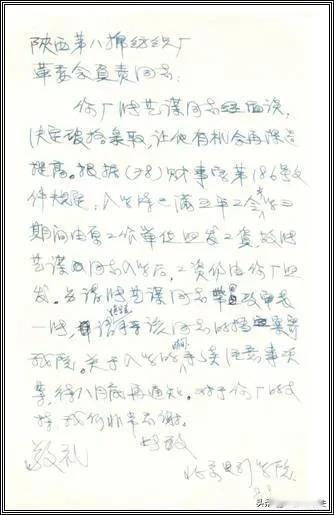 陕西第八棉纺织厂
革委会负责同志:
你厂张艺谋同志经面谈,
决定破格录取,让他有机会再深造
提高。根据(78)财事字第186号文
件规定:入学时已满五年工令,学习
期间由原工作单位照发工资,故张
艺谋同志入学后,工资仍由你厂照
发。另请张艺谋同志
一张,请 该同志的档案寄
我院。关于入学的手续注意事项
等,待八月底再通知。对于你厂的支
持,我们非常感谢。
此致
敬礼
北京电影学院
头条